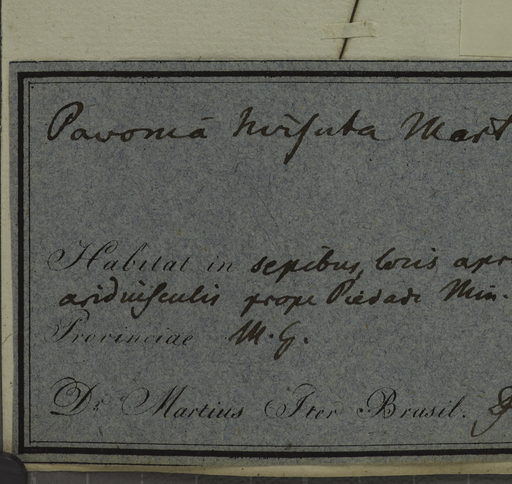 Pavonia hirsuta Mart
Habitat in sepibus, locis apr
aridiusculis prope Piedade Min.
Provinciae M. G.
Dr. Martius Iter Brasil.